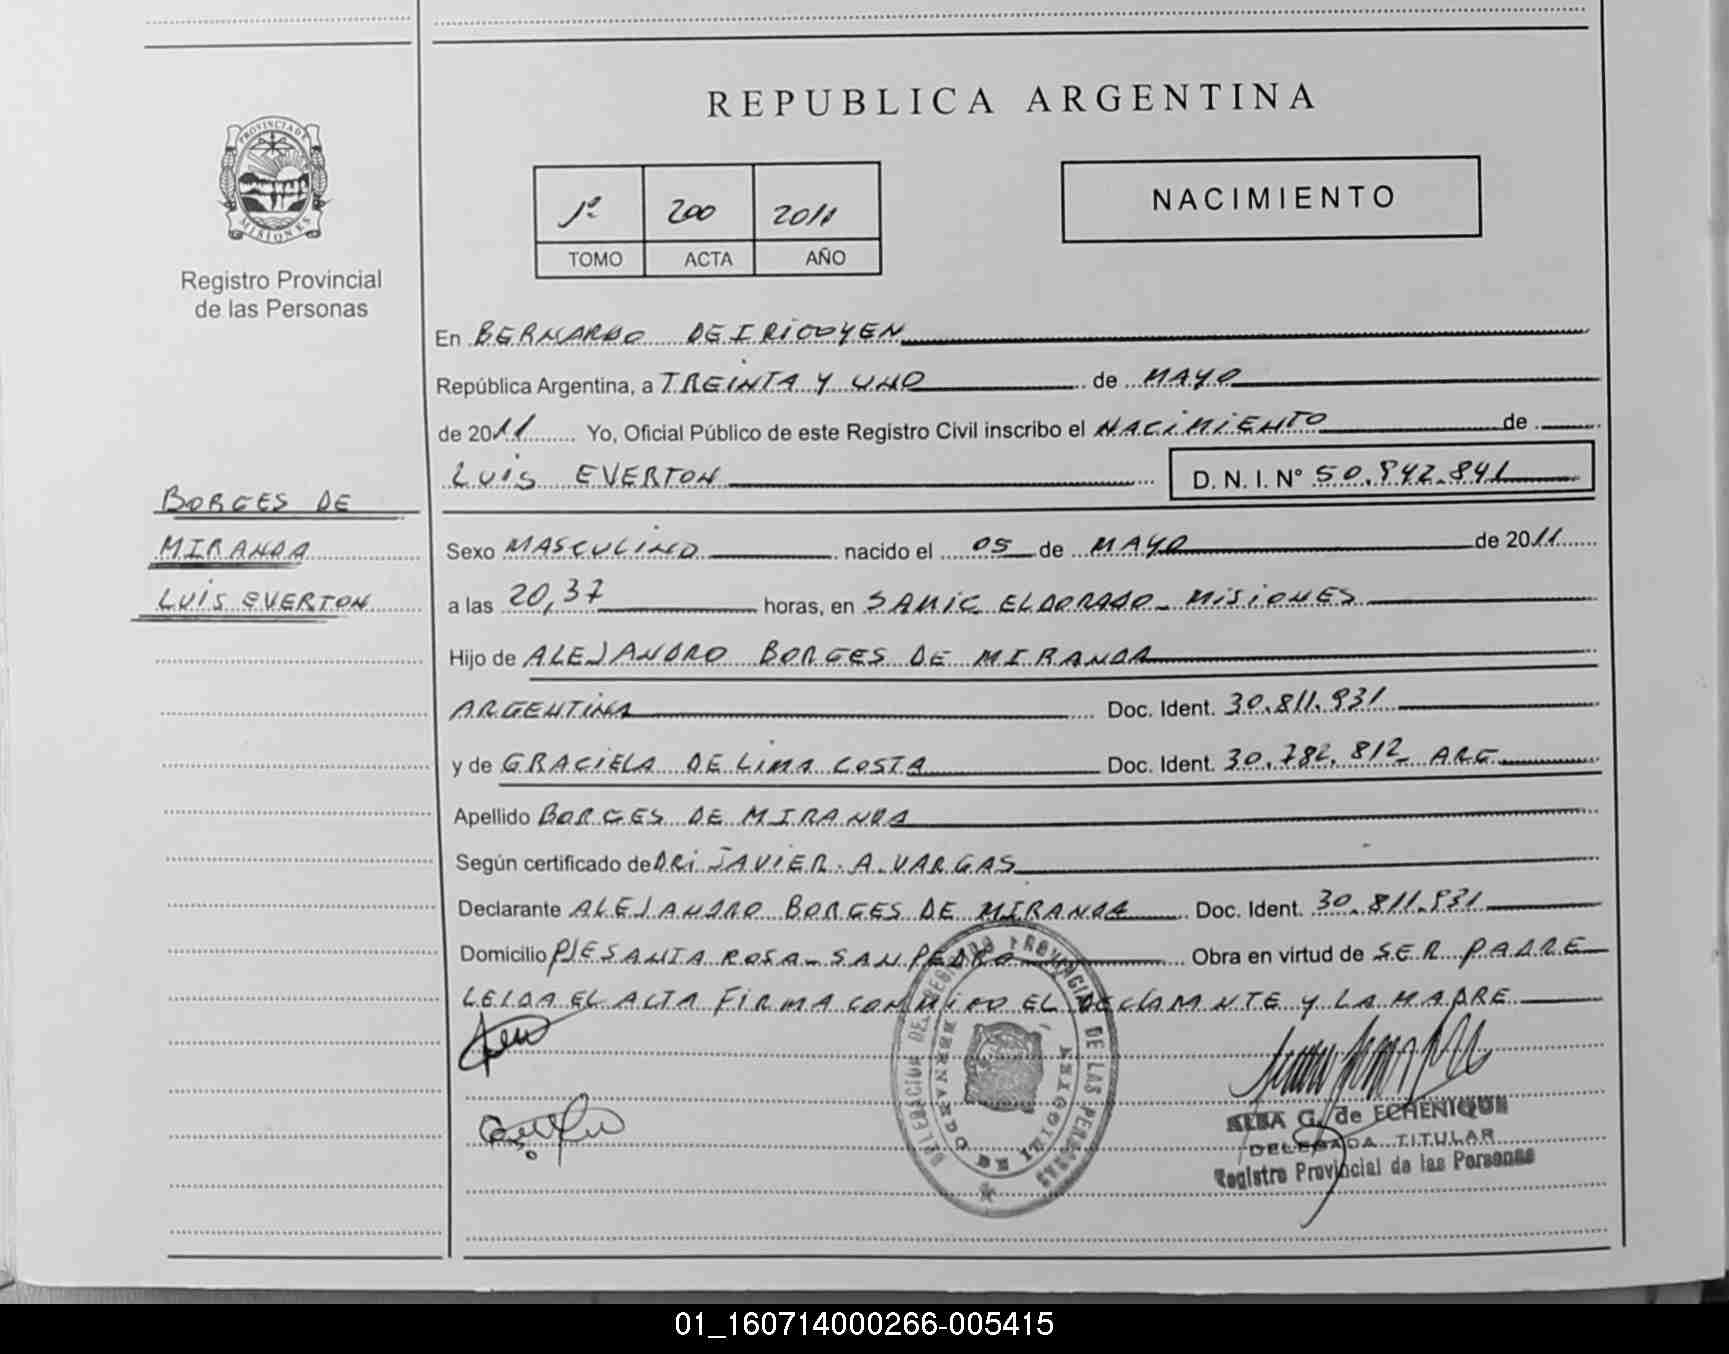 REPUBLICA ARGENTINA
PROVINCIA DE
MISIONES
Registro Provincial
de las Personas
1º 200 2011
TOMO ACTA AÑO
NACIMIENTO
En BERNARDO DE IRIGOYEN
República Argentina, a TREINTA Y UNO de MAYO
de 2011 Yo, Oficial Público de este Registro Civil inscribo el NACIMIENTO de
LUIS EVERTON D. N. I. Nº 50.942.841
BORGES DE
MIRANDA
LUIS EVERTON
Sexo MASCULINO nacido el 05 de MAYO de 2011
a las 20,37 horas, en SAMIC ELDORADO_ MISIONES
Hijo de ALEJANDRO BORGES DE MIRANDA
ARGENTINA Doc. Ident. 30.811.931
y de GRACIELA DE LIMA COSTA Doc. Ident. 30.782.812_ ARG
Apellido BORGES DE MIRANDA
Según certificado de DR: JAVIER. A. VARGAS
Declarante ALEJANDRO BORGES DE MIRANDA Doc. Ident. 30.811.931
Domicilio PJE SANTA ROSA_ SAN PEDRO Obra en virtud de SER PADRE
LEIDA EL ACTA FIRMA CONMIGO EL DECLARANTE Y LA MADRE
DELEGACION DEL REGISTRO PROVINCIAL DE LAS PERSONAS
BERNARDO DE IRIGOYEN
ALBA G. de ECHENIQUE
DELEGADA TITULAR
Registro Provincial de las Personas
01_160714000266-005415